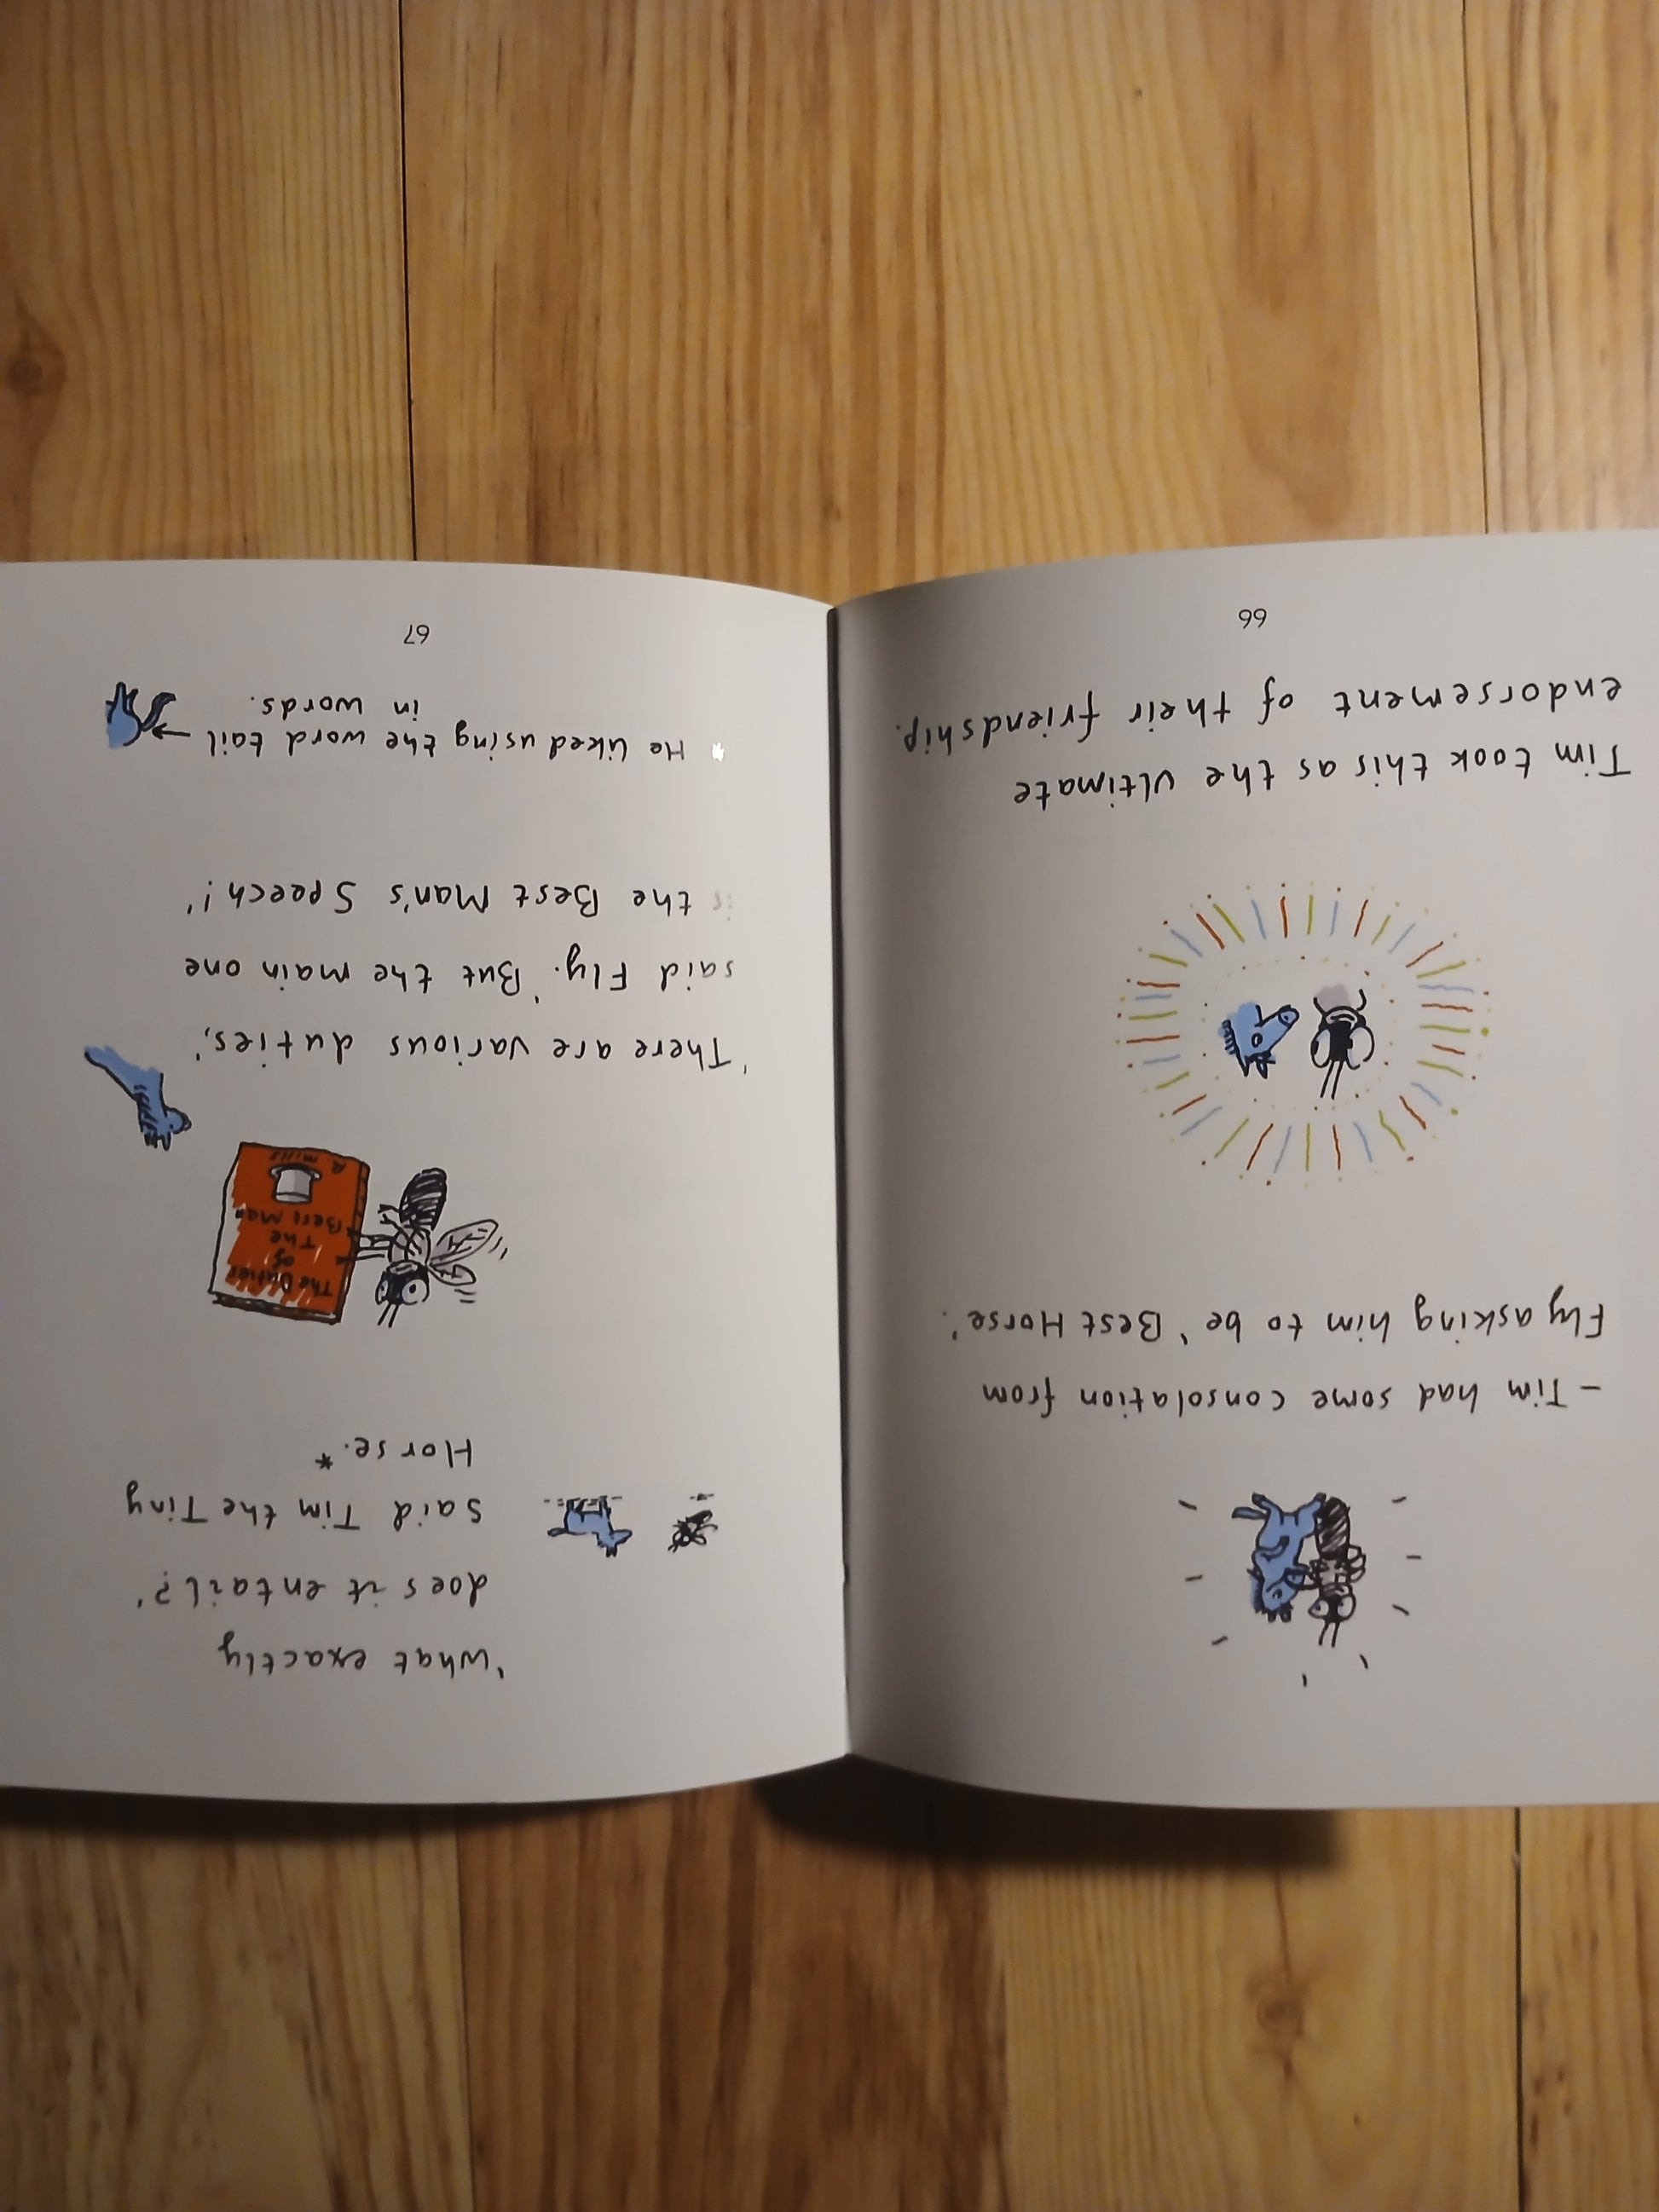 – Tim had some consolation from
Fly asking him to be 'Best Horse'.
Tim took this as the ultimate
endorsement of their friendship.
66
'What exactly
does it entail?'
said Tim the Tiny
Horse.*
The Duties
of
The
Best Man
R. Mills
'There are various duties,'
said Fly. 'But the main one
is the Best Man's Speech!'
* He liked using the word tail
in words.
67